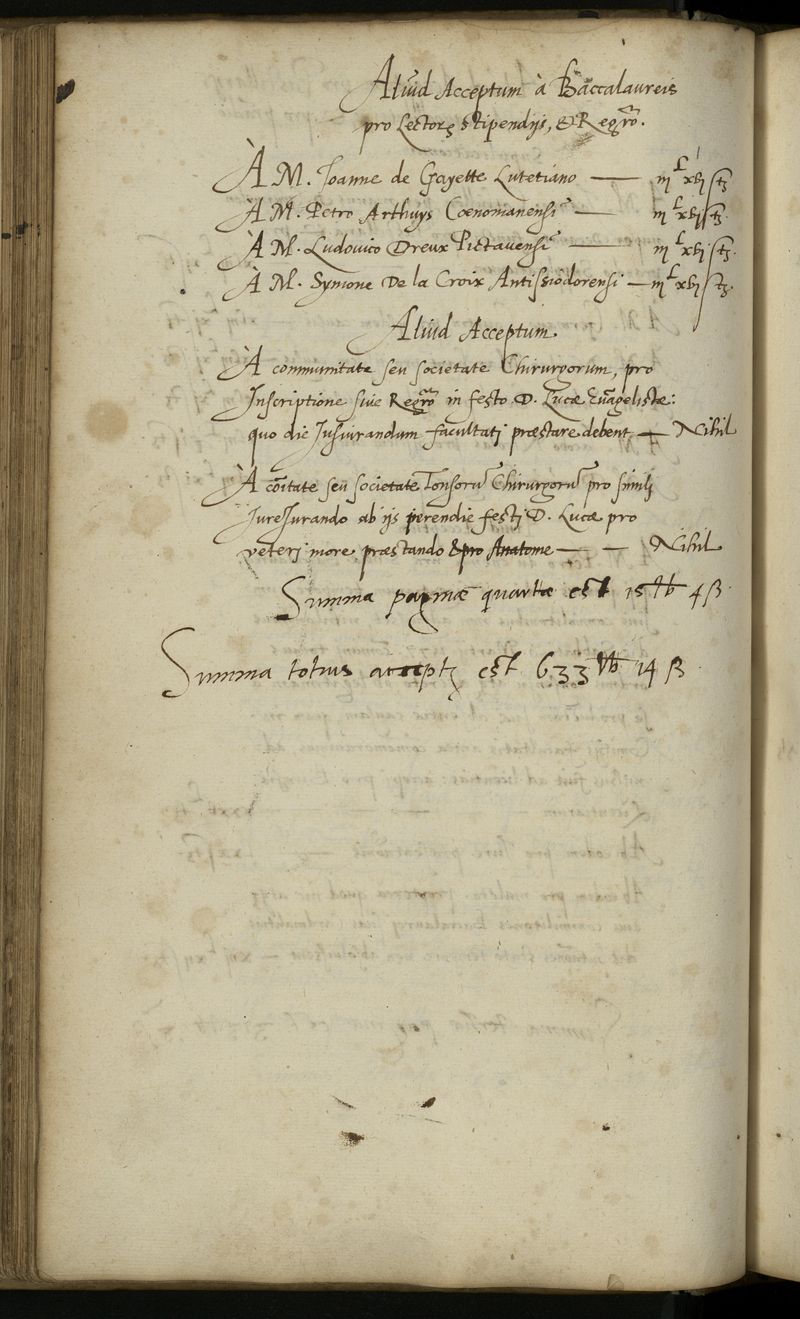 Aliud Acceptum à Baccalaureis
pro Lectorꝫ stipendijs, & Regrõ.
À M. Joanne de Gayette Lutetiano — iij ᴸ xvj ſtz
À M. Petro Arthuys Cœnomanensi — iij ᴸ xvj ſtz.
À M. Ludovico Dreux Pictavensi — iij ᴸ xvj ſtz.
À M. Symone De la Croix Antissiodorensi — iij ᴸ xvj ſtz.
Aliud Acceptum.
À communitate seu societate Chirurgorum, pro
Inscriptione sive Regrõ in festo D. Lucæ Euãgelistæ:
quo die Jusiurandum facultati præstare debent — Nihil
À cõitate seu societate Tonsorũ Chirurgorũ pro simili
JureJurando ab ijs perendie festi D. Lucæ pro
veteri more præstando & pro Anatome — — Nihil
Summa paginæ quartæ est 15 ℔ 4 ß.
Summa totius accepti est 633 ℔ 14 ß.